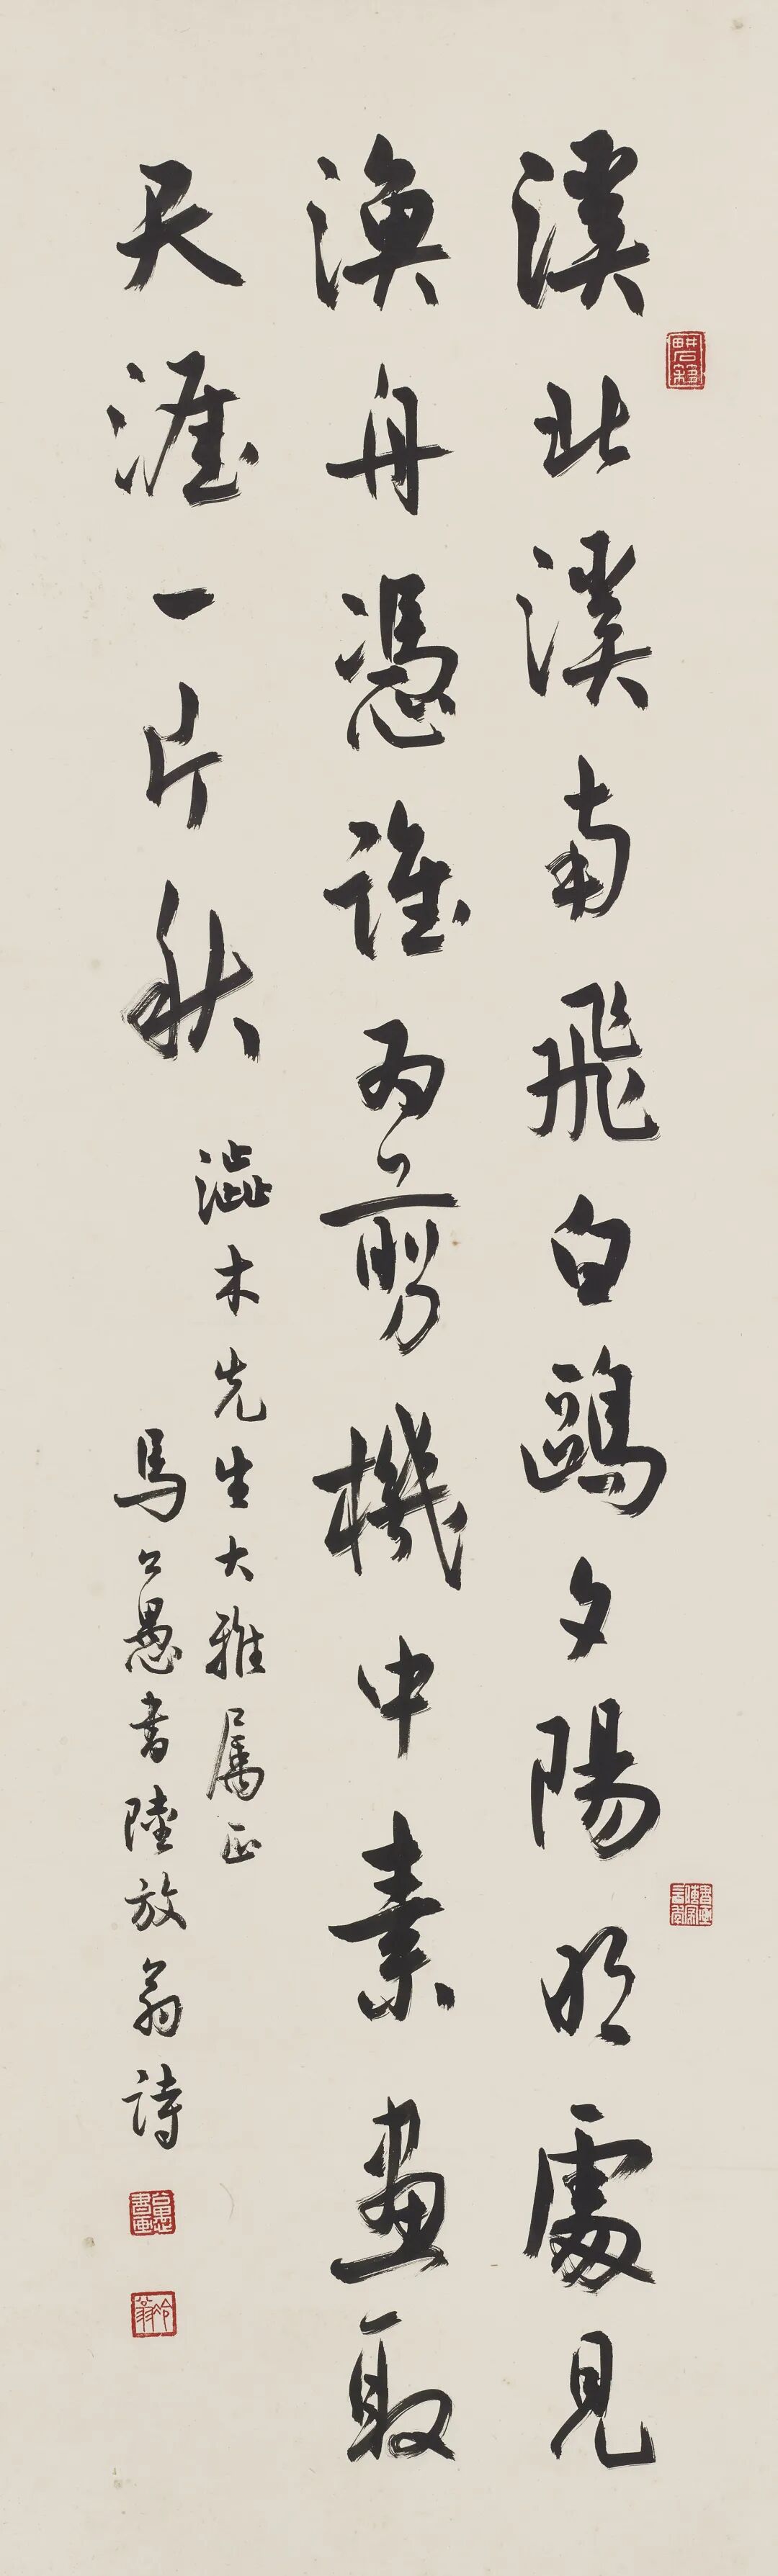 溪北溪南飛白鷗夕陽明處見
漁舟憑誰為剪機中素畫取
天涯一片秋
澀木先生大雅屬正
馬公愚書陸放翁詩